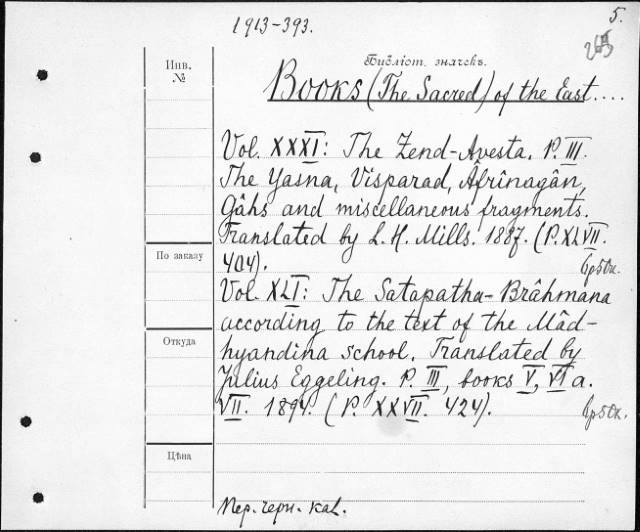 5.
1913-393.
Инв.
№
Библіот. значекъ.
Books (The Sacred) of the East....
Vol. XXXI: The Zend-Avesta. P. III.
The Yasna, Visparad, Âfrînagân,
Gâhs and miscellaneous fragments.
Translated by L. H. Mills. 1887. (P. XLVII.
404).
По заказу
Vol. XLI: The Satapatha-Brâhmana
according to the text of the Mâd-
Откуда
hyandina school. Translated by
Julius Eggeling. P. III, books V, VI a.
VII. 1894. (P. XXVII. 424).
Цѣна
Пер. черн. кат.